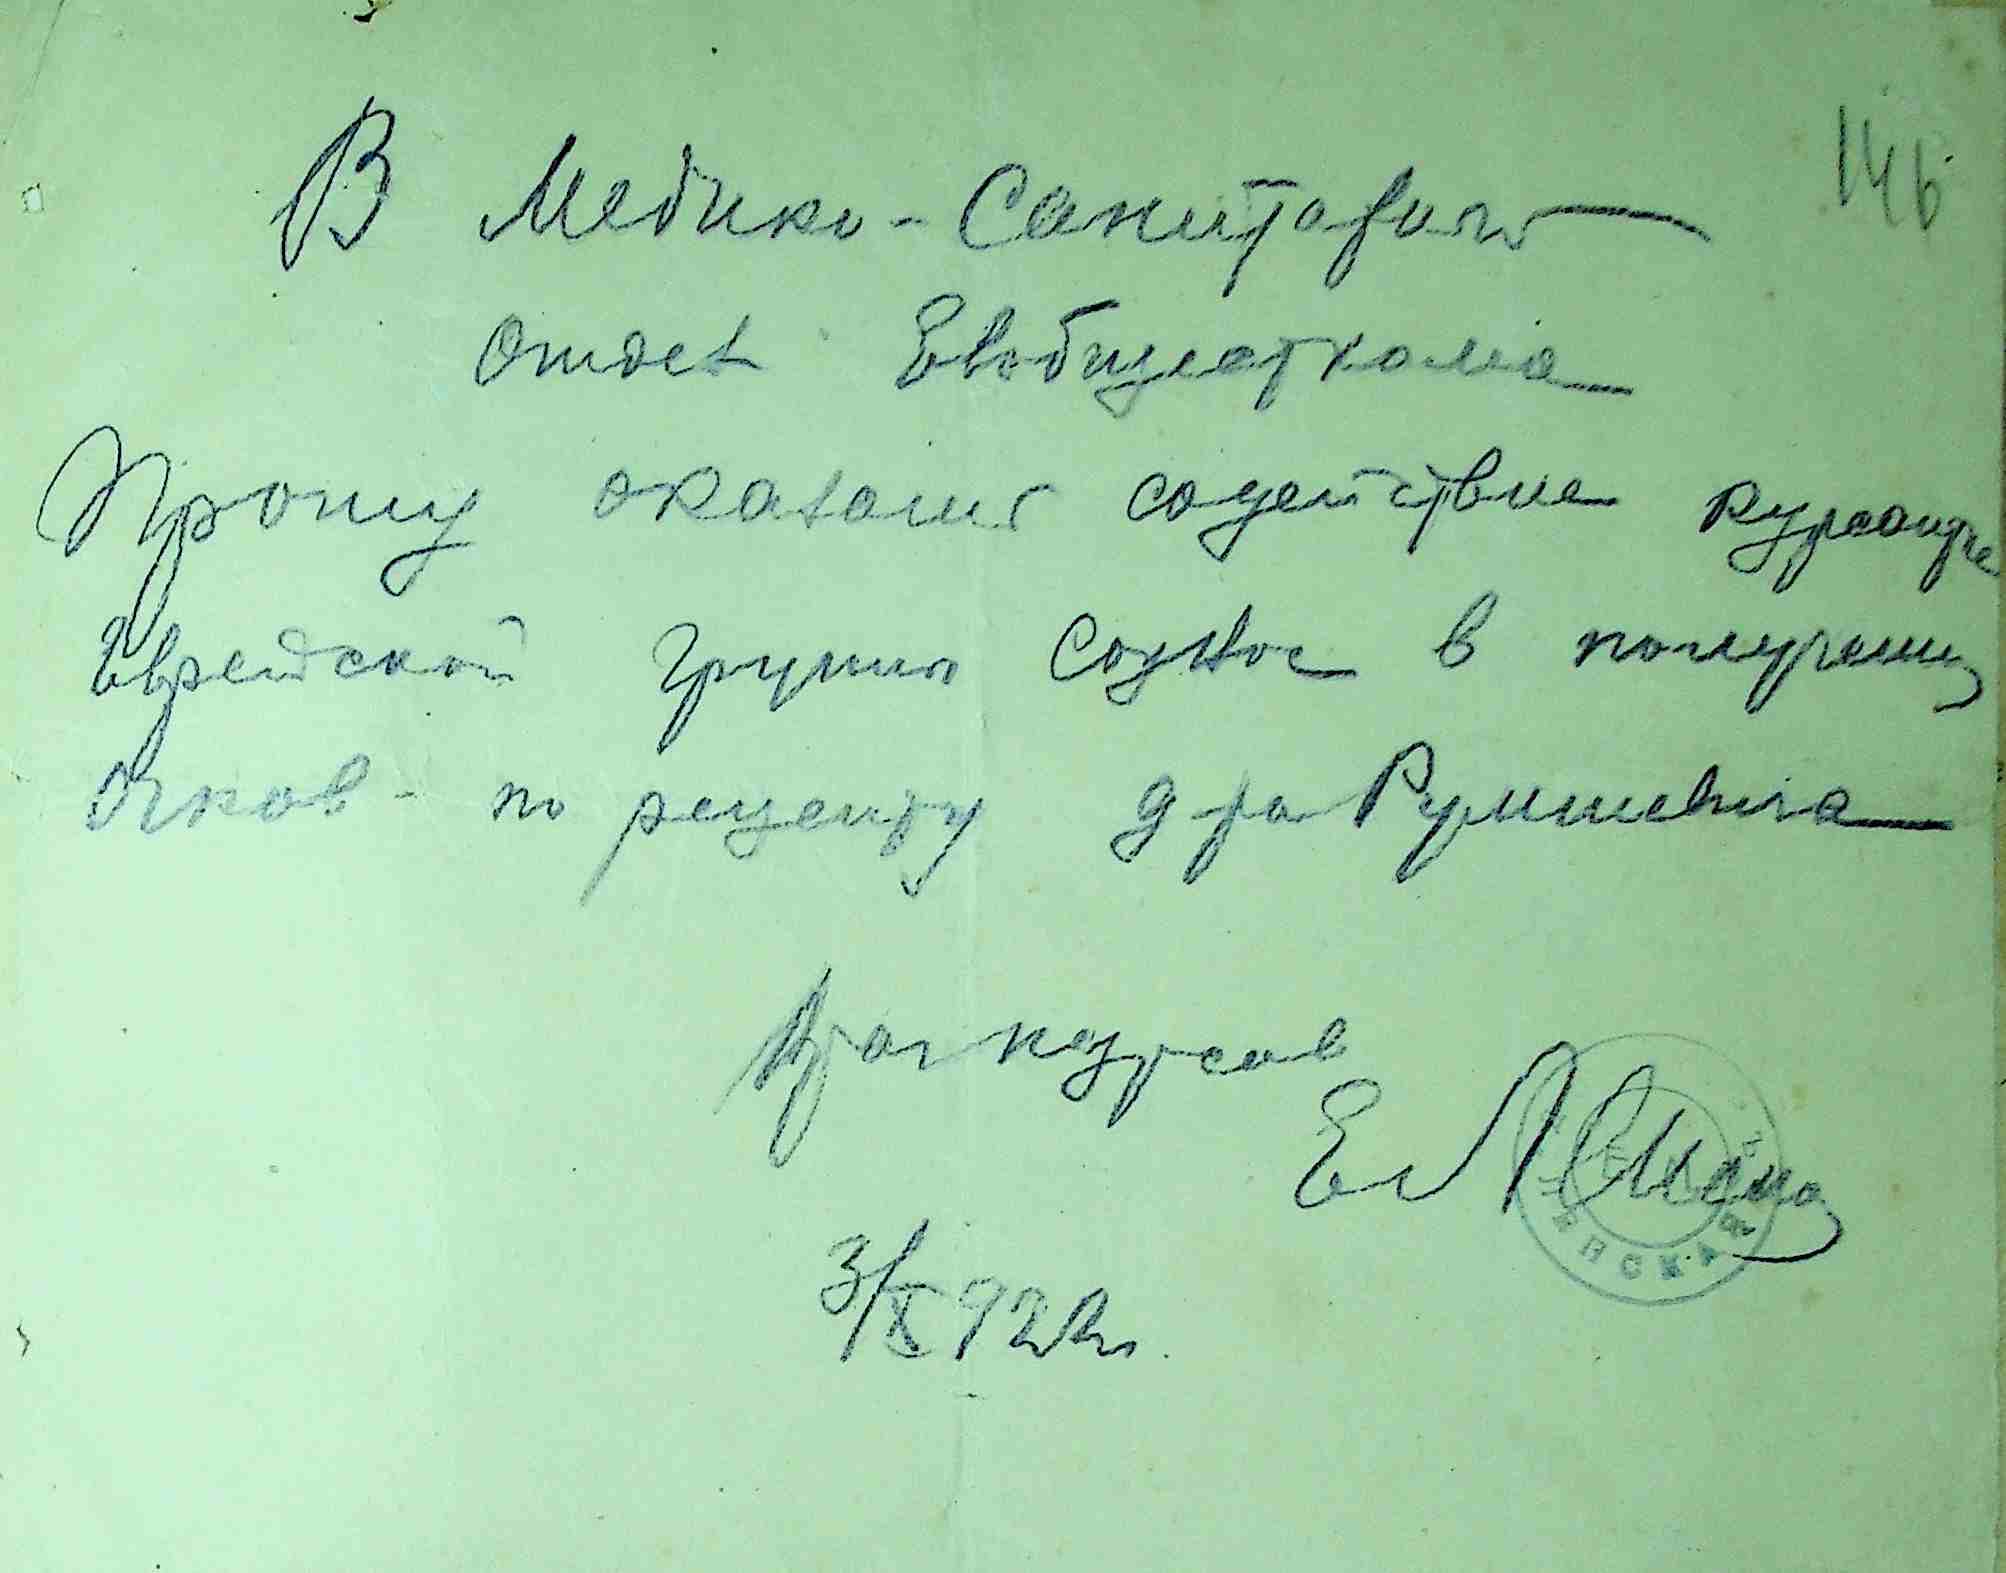 146
В Медико-Санитарный
отдел Евобщесткома
Прошу оказать содействие курсантке
Еврейской группы в получении
очков - по рецепту д-ра Румшевича
Врач курсов
3/X 922 г.